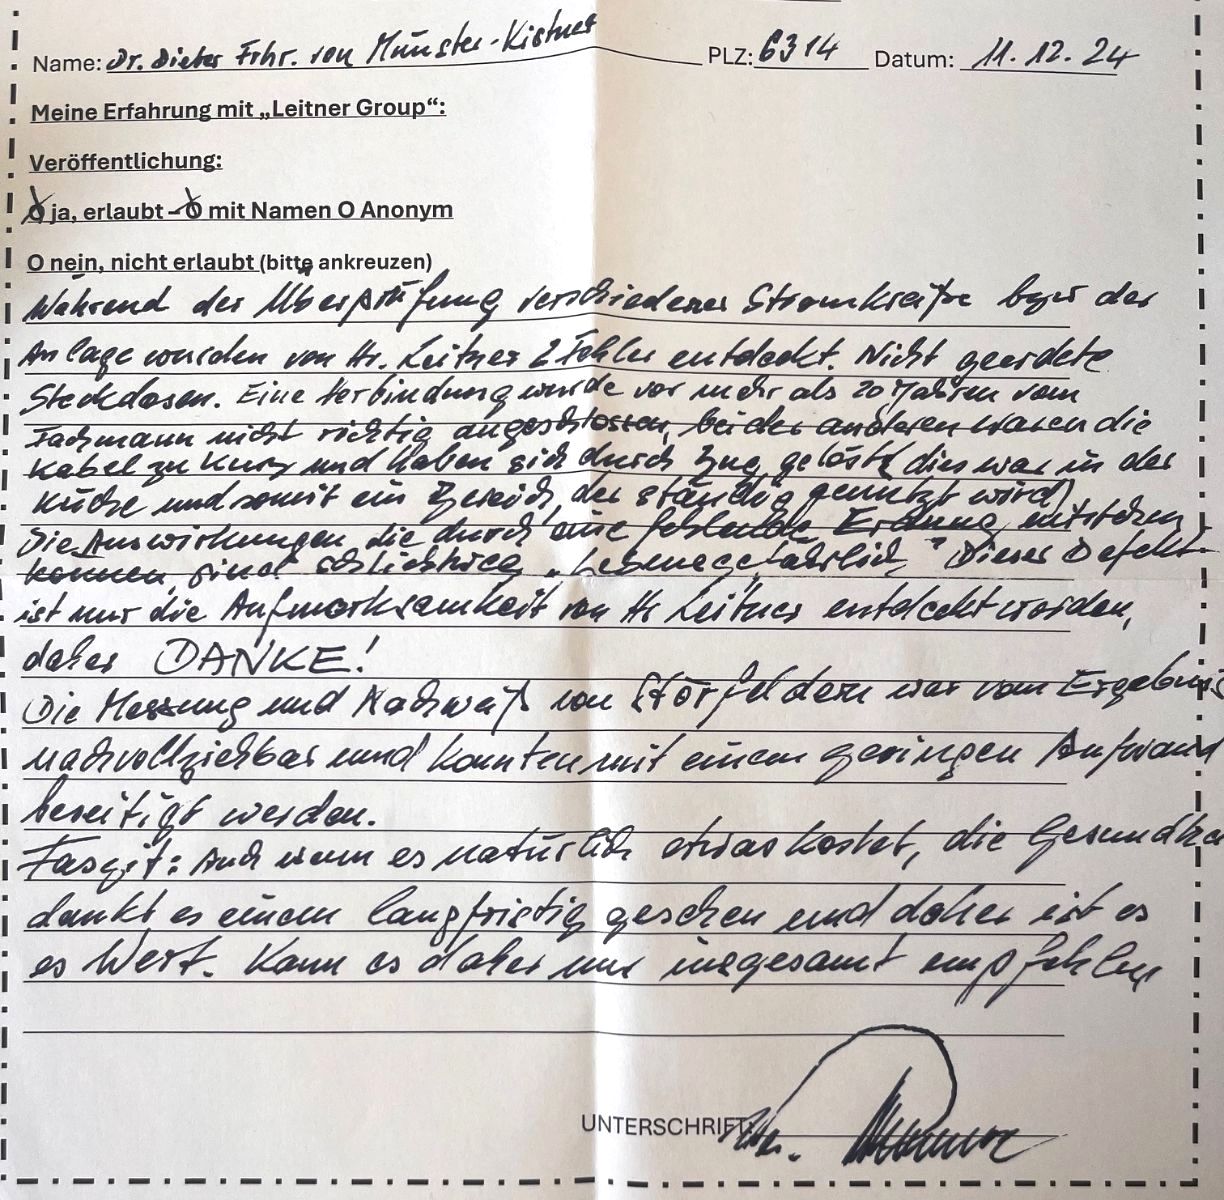 Name: Dr. Dieter Frhr. von Münster-Kistner PLZ: 6314 Datum: 11.12.24
Meine Erfahrung mit „Leitner Group“:
Veröffentlichung:
O ja, erlaubt – O mit Namen O Anonym
O nein, nicht erlaubt (bitte ankreuzen)
Während der Überprüfung verschiedener Stromkreise bzw der
Anlage wurden von Hr. Leitner 2 Fehler entdeckt. Nicht geerdete
Steckdosen. Eine Verbindung wurde vor mehr als 20 Jahren vom
Fachmann nicht richtig angeschlossen, bei der anderen waren die
Kabel zu kurz und haben sich durch Zug gelöst (dies war in der
Küche und somit ein Bereich, der ständig genutzt wird)
Die Auswirkungen die durch eine fehlende Erdung entstehen
können, sind schlichtweg "Lebensgefährlich" Dieser Defekt
ist nur die Aufmerksamkeit von Hr Leitner entdeckt worden,
daher DANKE!
Die Messung und Nachweiß von Störfeldern war vom Ergebnis
nachvollziehbar und konnten mit einem geringen Aufwand
beseitigt werden.
Fazit: Auch wenn es natürlich etwas kostet, die Gesundhe
dankt es einem langfristig gesehen und daher ist es
es Wert. Kann es daher nur insgesamt empfehlen
UNTERSCHRIFT: